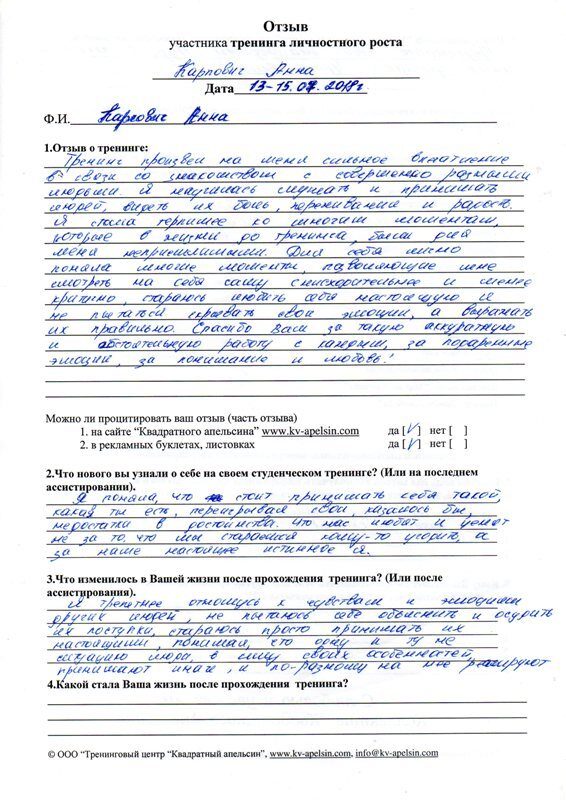 Отзыв
участника тренинга личностного роста
Карпович Анна
Дата 13-15.07.2018г.
Ф.И. Карпович Анна
1.Отзыв о тренинге:
Тренинг произвел на меня сильное впечатление
в связи со знакомством с совершенно разными
людьми. Я научилась слушать и принимать
людей, видеть их боль, переживание и радость.
Я стала терпимее ко многим моментам,
которые в жизни до тренинга, были для
меня неприемлимыми. Для себя лично
поняла многие моменты, позволяющие мне
смотреть на себя саму снисходительнее и менее
критично, стараюсь любить себя настоящую и
не пытаться скрывать свои эмоции, а выражать
их правильно. Спасибо Вам за такую аккуратную
и обстоятельную работу с каждым, за подаренные
эмоции, за понимание и любовь!
Можно ли процитировать ваш отзыв (часть отзыва)
1. на сайте “Квадратного апельсина” www.kv-apelsin.com да [V] нет [ ]
2. в рекламных буклетах, листовках да [V] нет [ ]
2.Что нового вы узнали о себе на своем студенческом тренинге? (Или на последнем
ассистировании).
Я поняла, что стоит принимать себя такой,
какая ты есть, переигрывая свои, казалось бы,
недостатки в достоинства. Что нас любят и ценят
не за то, что мы стараемся кому-то угодить, а
за наше настоящее истинное я.
3.Что изменилось в Вашей жизни после прохождения тренинга? (Или после
ассистирования).
Я трепетнее отношусь к чувствам и эмоциям
других людей, не пытаюсь себе объяснить и осудить
их поступки, стараюсь просто принимать их
настоящими, понимая, что одну и ту же
ситуацию люди, в силу своих особенностей,
принимают иначе, и по-разному на нее реагируют
4.Какой стала Ваша жизнь после прохождения тренинга?
© ООО “Тренинговый центр “Квадратный апельсин”, www.kv-apelsin.com, info@kv-apelsin.com